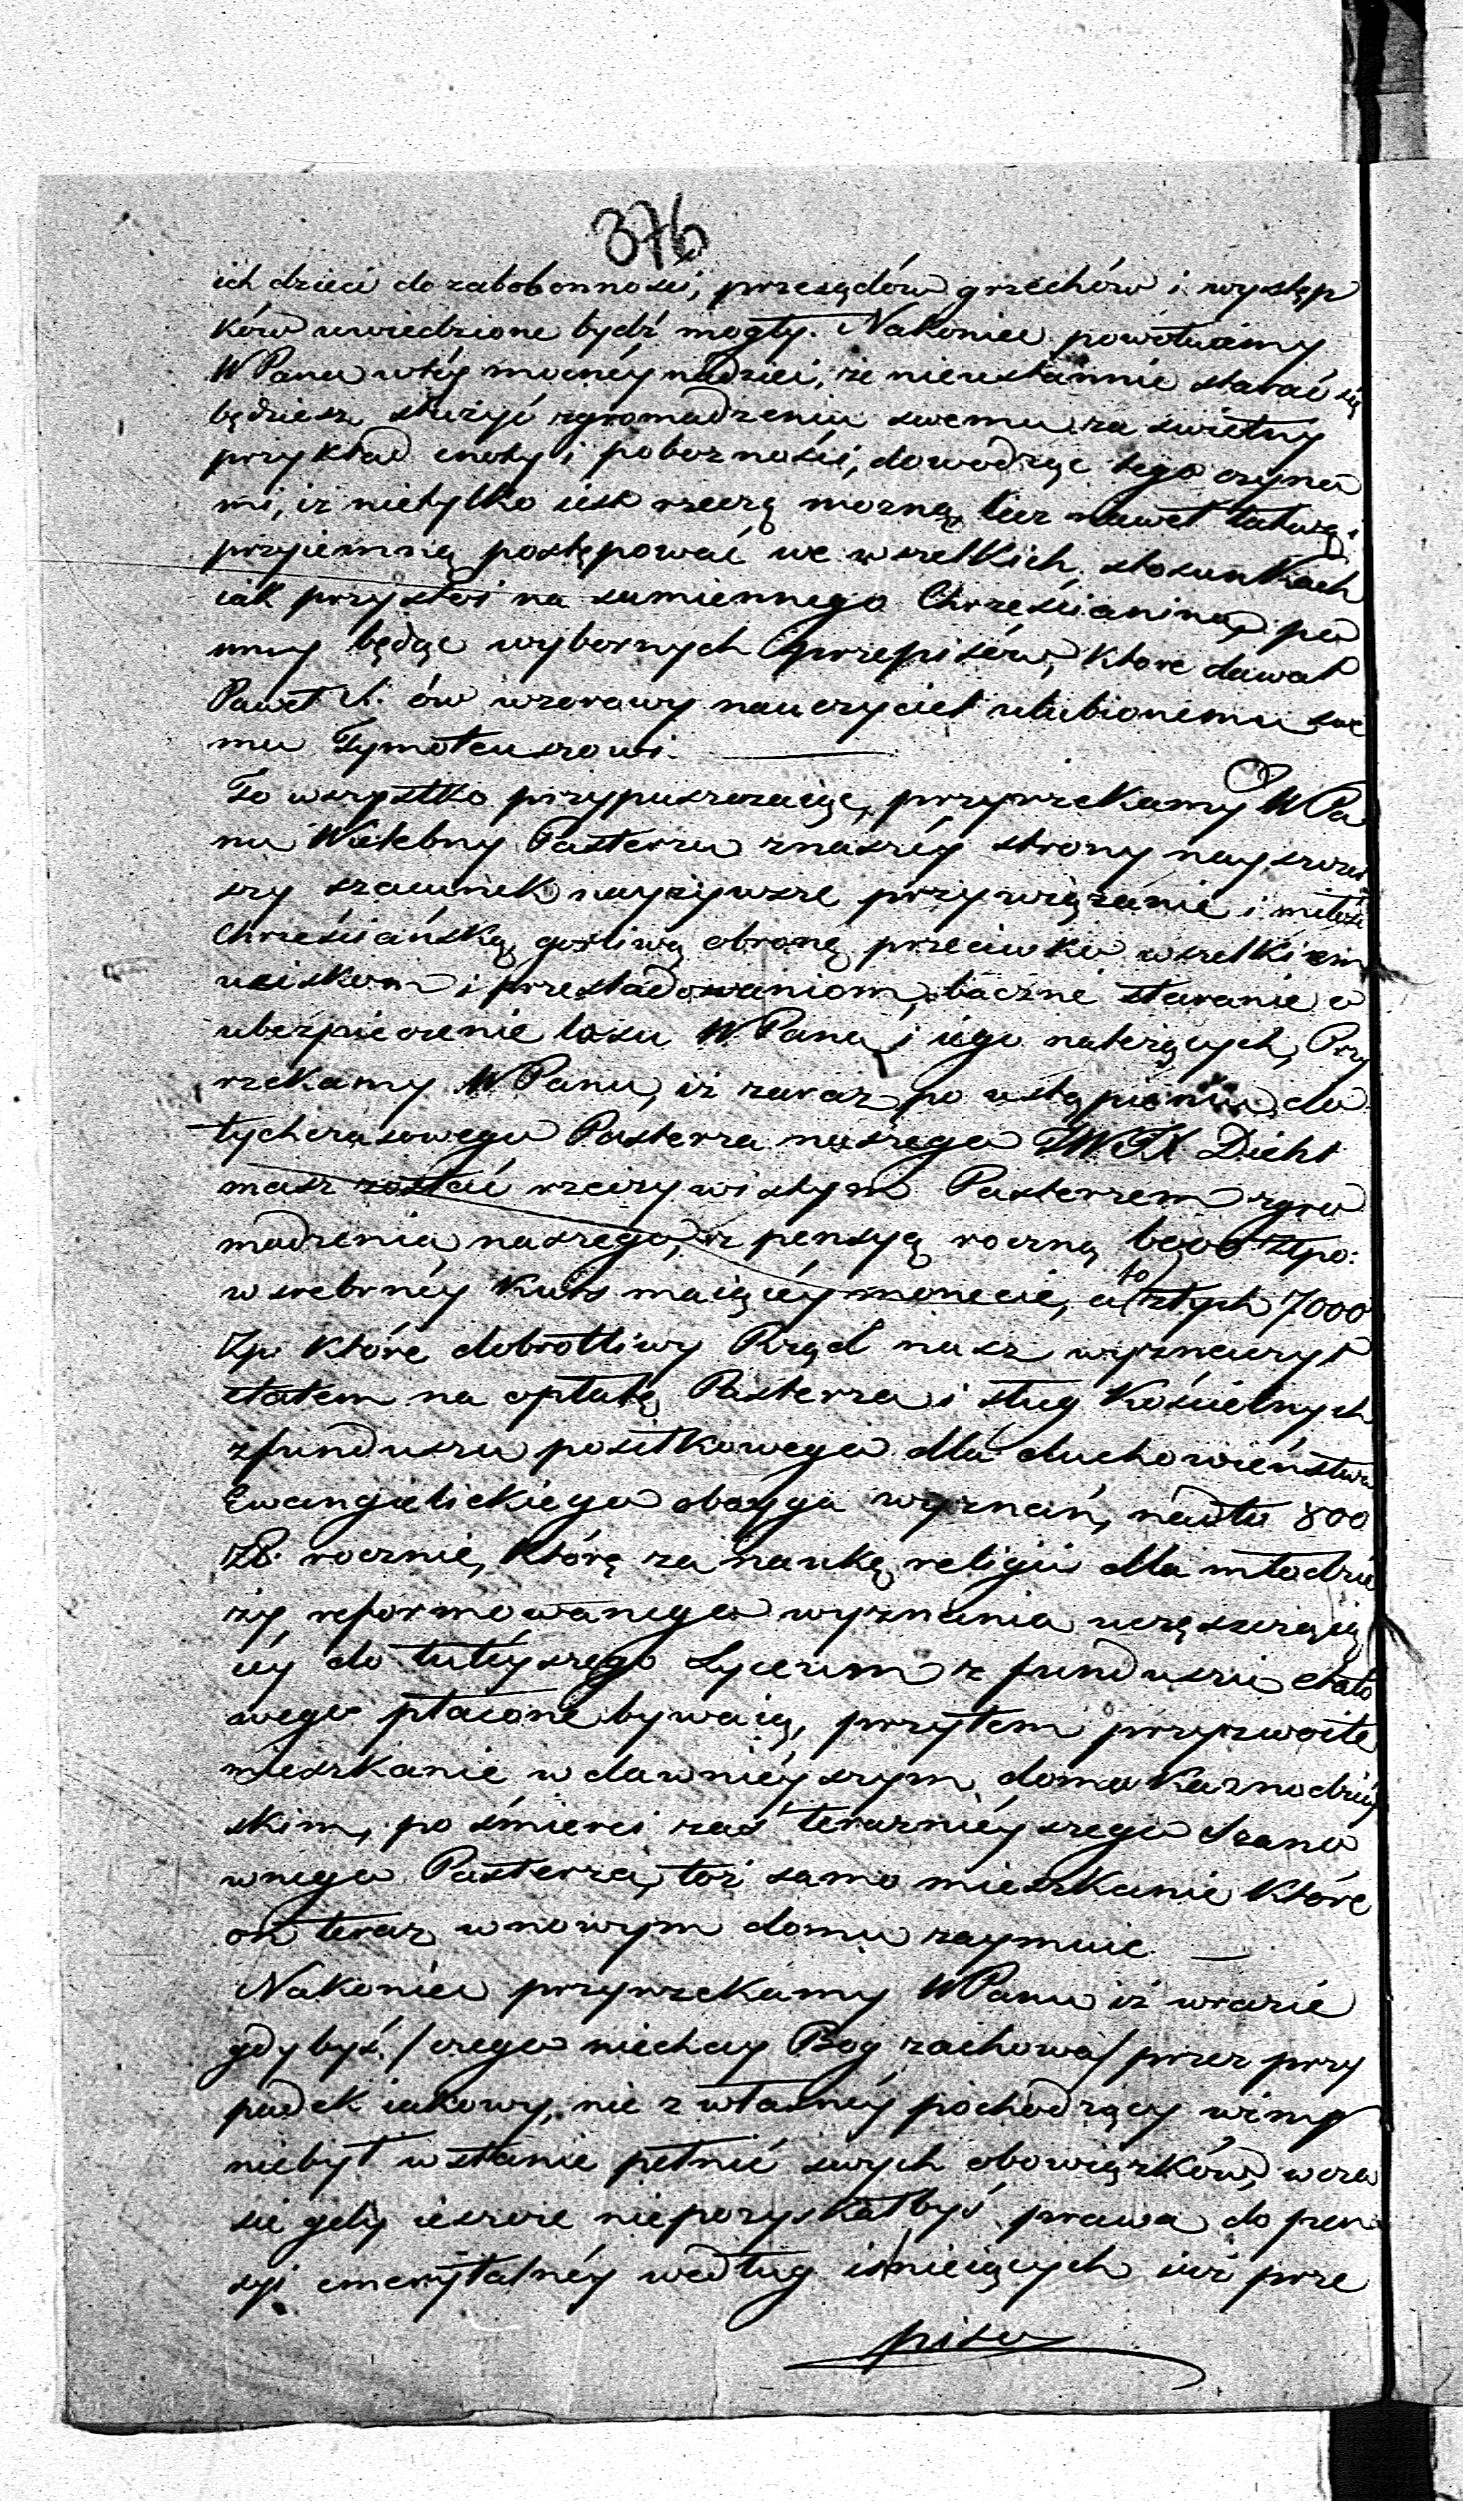 376
ich dzieci do zabobonności, przesądów grzechów i występ
ków uwiedzione bydź mogły. Nakoniec powołuiemy
WPana wtéy mocnéy nadziei, że nieustannie starać się
będziesz służyć zgromadzeniu swemu za świetny
przykład cnoty i pobożności, dowodząc tego czyna
mi, iż nietylko iest rzeczą możną, lecz nawet łatwą i
przyiemną postępować we wszelkich stosunkach
iak przystoi na sumiennego Chrześcianina, po
mny będąc wybornych przepisów, które dawał
Paweł S. ów wzorowy nauczyciel ulubionemu swe
mu Tymoteuszowi.
To wszystko przypuszczaiąc, przyrzekamy WPa
nu Wielebny Pasterzu znaszéy strony nayszczer
szy szacunek nayżywsze przywiązanie i miłość
Chrześciańską, gorliwą obronę przeciwko wszelkiem
uciskom i prześladowaniom, baczne staranie o
ubezpieczenie losu WPana i iego należących, Przy
rzekamy WPanu, iż zaraz po ustąpieniu do
tychczasowego Pasterza naszego JWJX Diehl
masz zostać rzeczywistym Pasterzem zgro
madzenia naszego, z pensyą roczną 6000 Złpo:
w srebrnéy kurs maiącéy monecie, a to ztych 7000
Zp. które dobrotliwy Rząd nasz wyznaczył
etatem na opłatę Pasterza i sług Kościelnych
zfunduszu posiłkowego dla duchowieństwa
Ewangielickiego oboyga wyznań, nadto 800
Zł. rocznie, które za naukę religii dla młodzie
ży reformowanego wyznania uczęszczaią
céy do tutéyszego Lyceum z funduszu etato
wego płacone bywaią, przytem przyzwoite
mieszkanie w dawniéyszym domu Kaznodziéy
skim, po śmierci zaś teraznieyszego Szano
wnego Pasterza, toż samo mieszkanie które
on teraz w nowym domu zaymuie
Nakoniec przyrzekamy WPanu iż wrazie
gdybyś /czego niechay Bog zachowa/ przez przy
padek iakowy, nie z własnéy pochodzący winy
niebył wstanie pełnić swych obowiązków, wcza
sie gdy ieszcze niepozyskałbyś prawa do pen
syi emerytalnéy według istnieiących iuż prze
piso